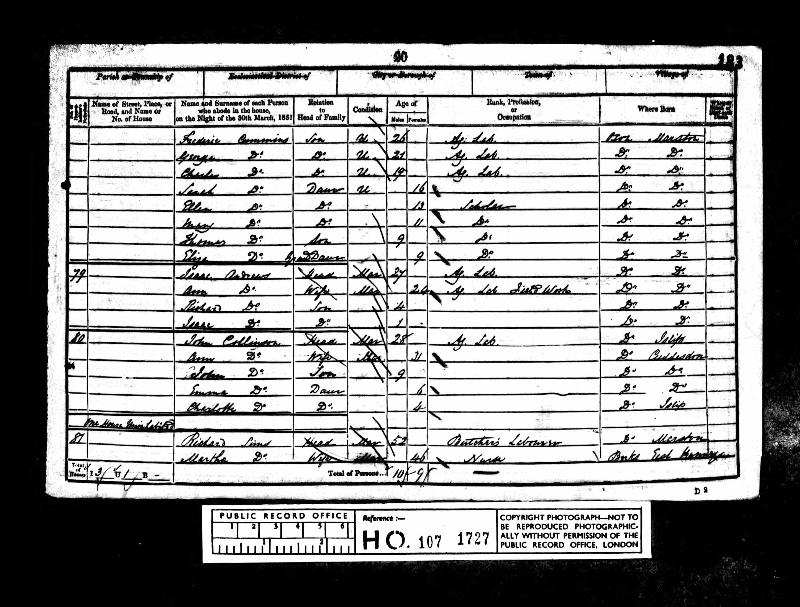 20
183
Parish or Township of Ecclesiastical District of City or Borough of Town of Village of
Name of Street, Place, or Road, and Name or No. of House
Name and Surname of each Person who abode in the house, on the Night of the 30th March, 1851
Relation to Head of Family
Condition
Age of
Males Females
Rank, Profession, or Occupation
Where Born
Frederic Cummins Son U 26 Ag. Lab. Oxon Marston
George Do Do U 21 Ag. Lab. Do Do
Charles Do Do U 19 Ag. Lab. Do Do
Sarah Do Daur U 16 Do Do
Ellen Do Do 13 Scholar Do Do
Mary Do Do 11 Do Do Do
Thomas Do Son 9 Do Do Do
Eliza Do Grand Daur 9 Do Do Do
79 Isaac Andrews Head Mar 27 Ag. Lab. Do Do
Ann Do Wife Mar 24 Ag. Lab Work Do Do
Richard Do Son 4 Do Do
Isaac Do Do 1 Do Do
80 John Collinson Head Mar 28 Ag. Lab. Do Islip
Ann Do Wife Mar 31 Do Cuddesdon
John Do Son 9 Do Do
Emma Do Daur 6 Do Do
Charlotte Do Do 4 Do Islip
One House Uninhabited
81 Richard Sims Head Mar 52 Butcher's Labourer Do Marston
Martha Do Wife Mar 46 Nurse Berks East
Total of Houses I 3 U 1 B – Total of Persons... 10 9
D 2
PUBLIC RECORD OFFICE
1 2 3 4 5 6
1 2
Reference :-
HO. 107 1727
COPYRIGHT PHOTOGRAPH—NOT TO
BE REPRODUCED PHOTOGRAPHIC-
ALLY WITHOUT PERMISSION OF THE
PUBLIC RECORD OFFICE, LONDON